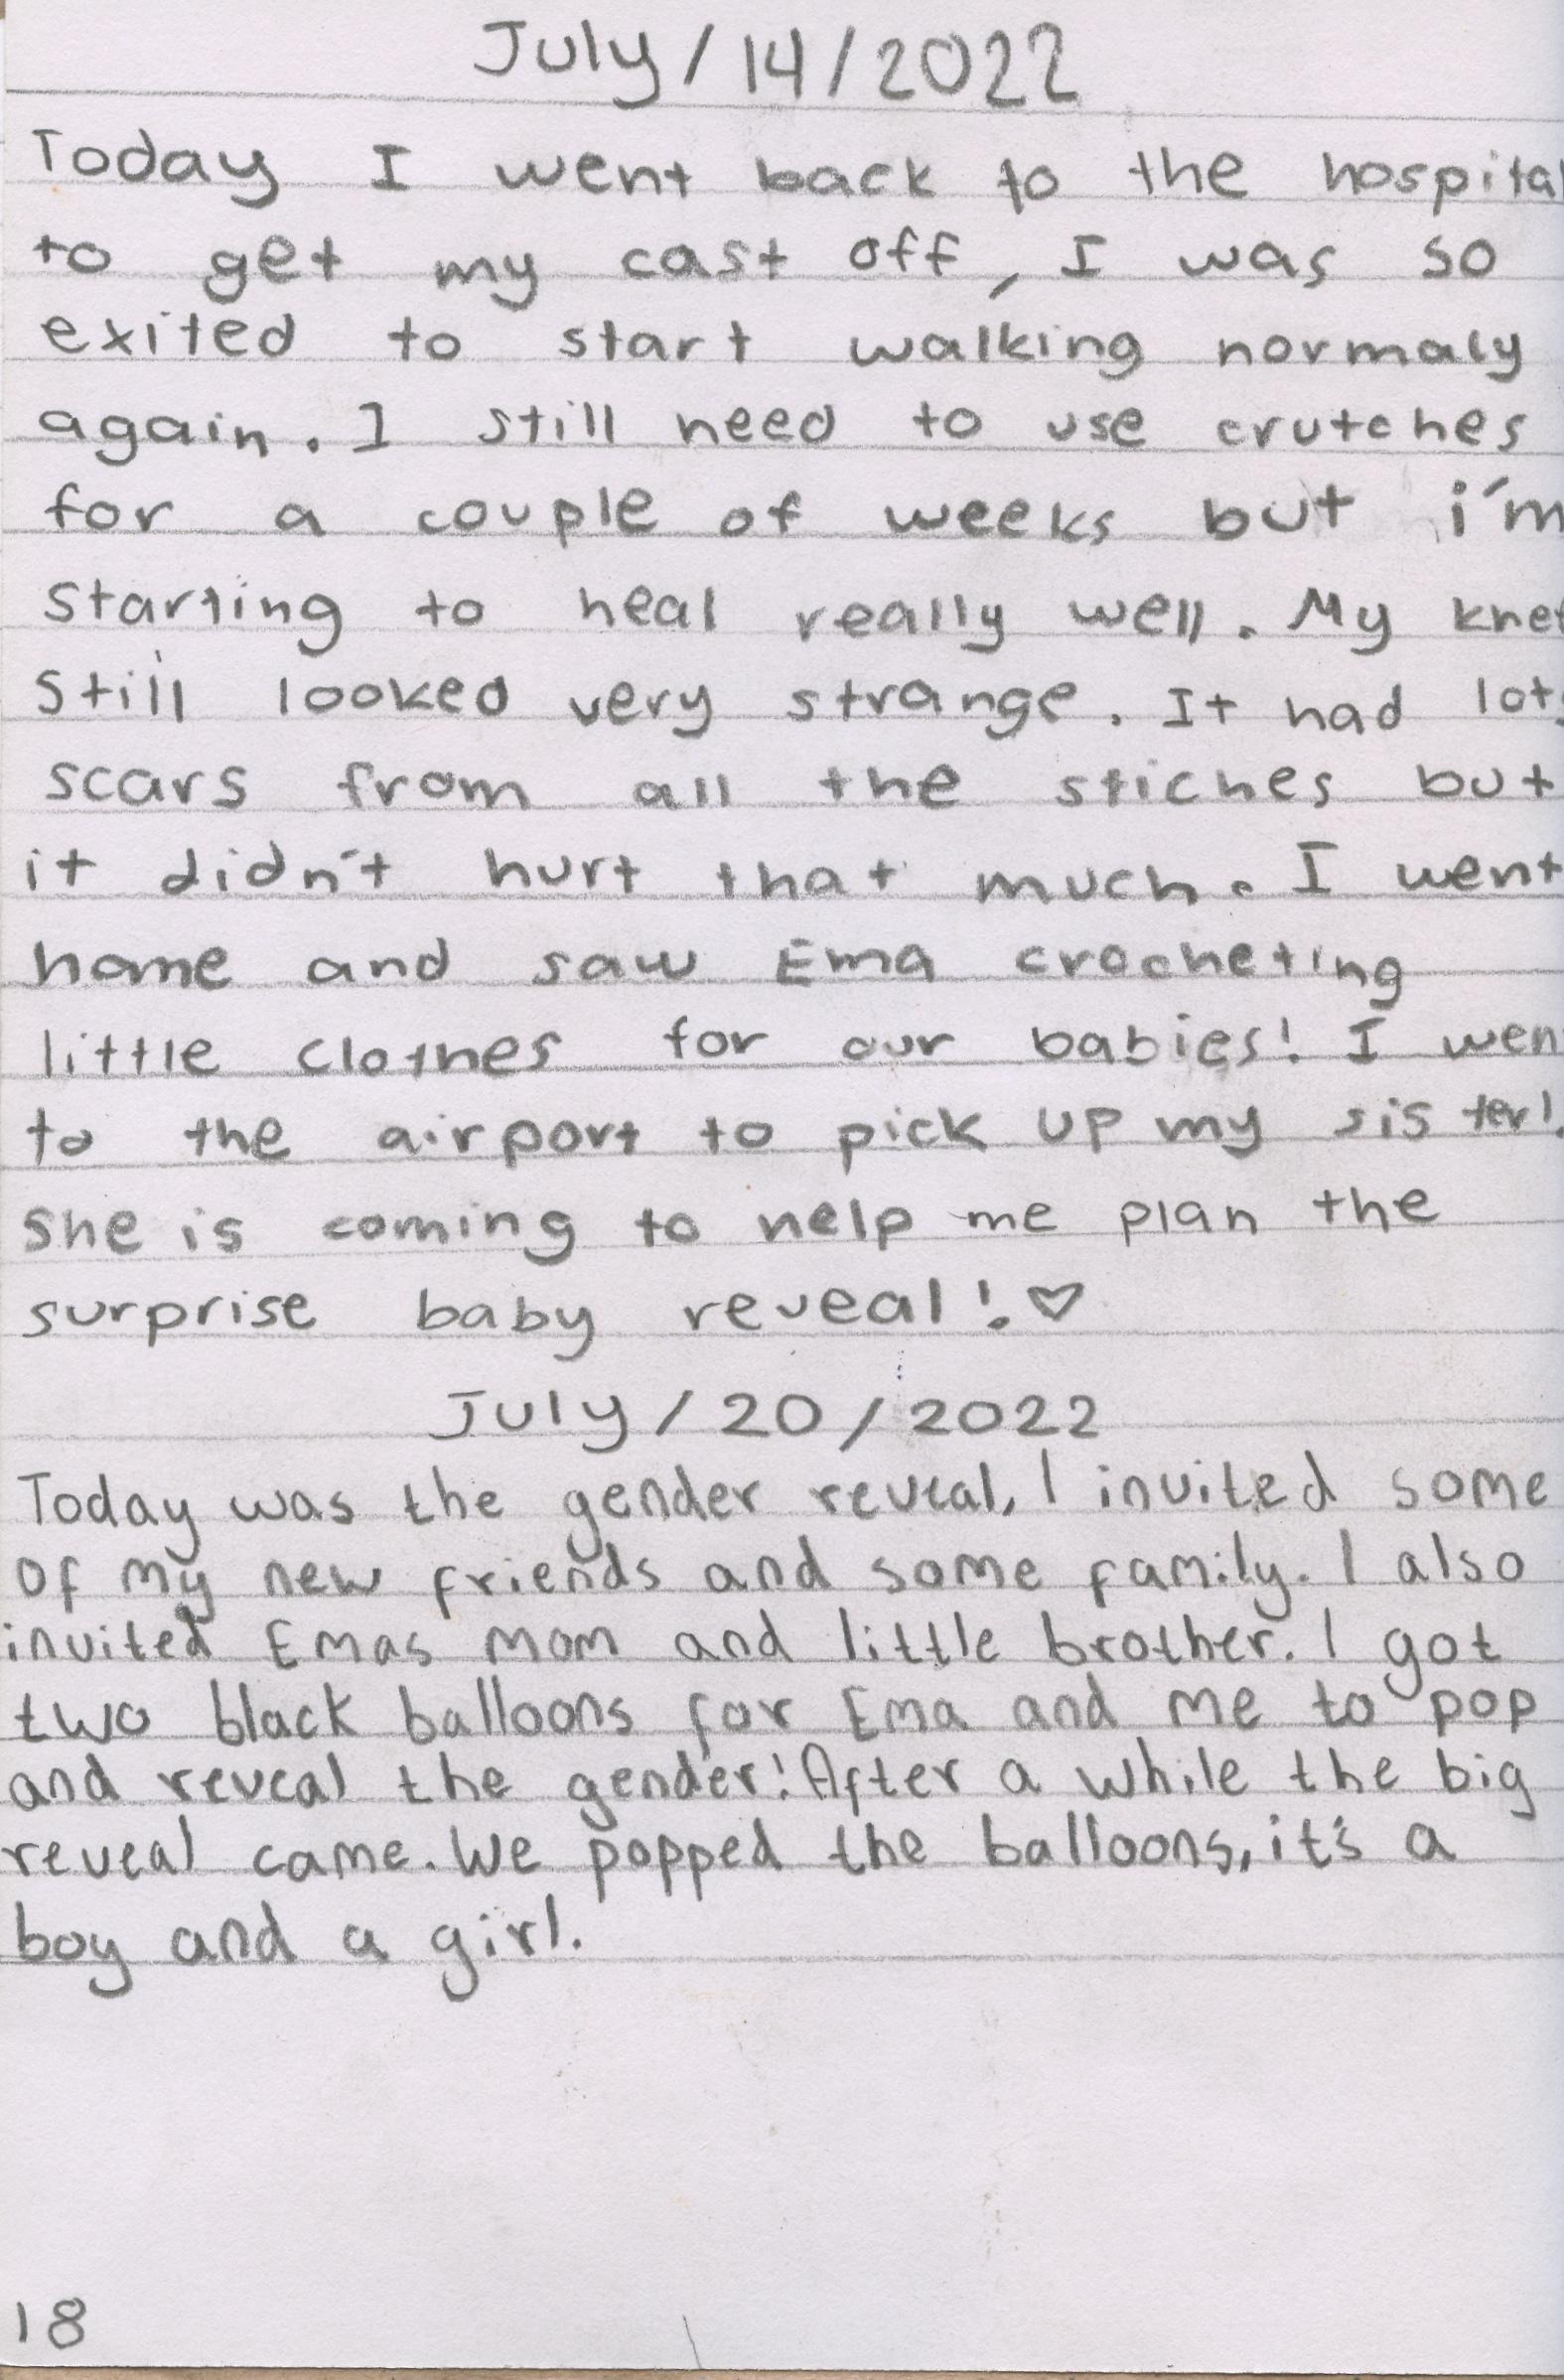 July/14/2022
Today I went back to the hospital
to get my cast off, I was so
exited to start walking normaly
again. I still need to use crutches
for a couple of weeks but i'm
starting to heal really well. My knee
still looked very strange. It had lot
scars from all the stiches but
it didn't hurt that much. I went
home and saw Ema crocheting
little clothes for our babies! I wen
to the airport to pick up my sister!
she is coming to help me plan the
surprise baby reveal! ♡
July/20/2022
Today was the gender reveal, I invited some
of my new friends and some family. I also
invited Emas mom and little brother. I got
two black balloons for Ema and me to pop
and reveal the gender! After a while the big
reveal came. We popped the balloons, it's a
boy and a girl.
18